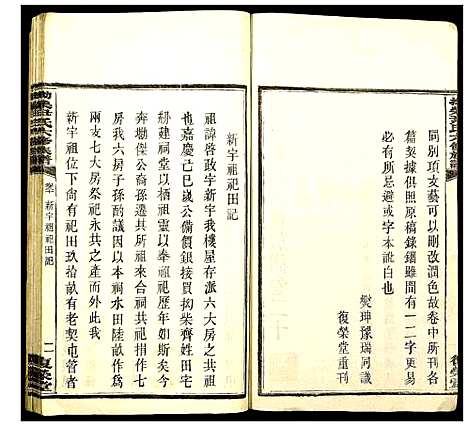 同別項支藝可以刪改潤色故卷中所刊各
篇契據俱照原稿錄鐫雖間有一二字更易
必有所忌避或字本訛白也
燮珅豫瑞同識
復榮堂重刊
新宇祖祀田記
祖諱啓政字新宇我樓屋存派六大房之共祖
也嘉慶己巳歲公備價銀接買拗柴齊姓田宅
剏建祠堂以妥祖以奉祖祀歷年如斯矣今冬
奔坳傑公裔孫遷其所祖來合祠共祀捐作七
房我六房子孫酌議因以本祠水田陸畝作為
兩支七大房祭祀永共之產而外此我
新宇祖位下尚有祀田玖拾畝有老契屯管者
新宇祖祀田記
復榮堂